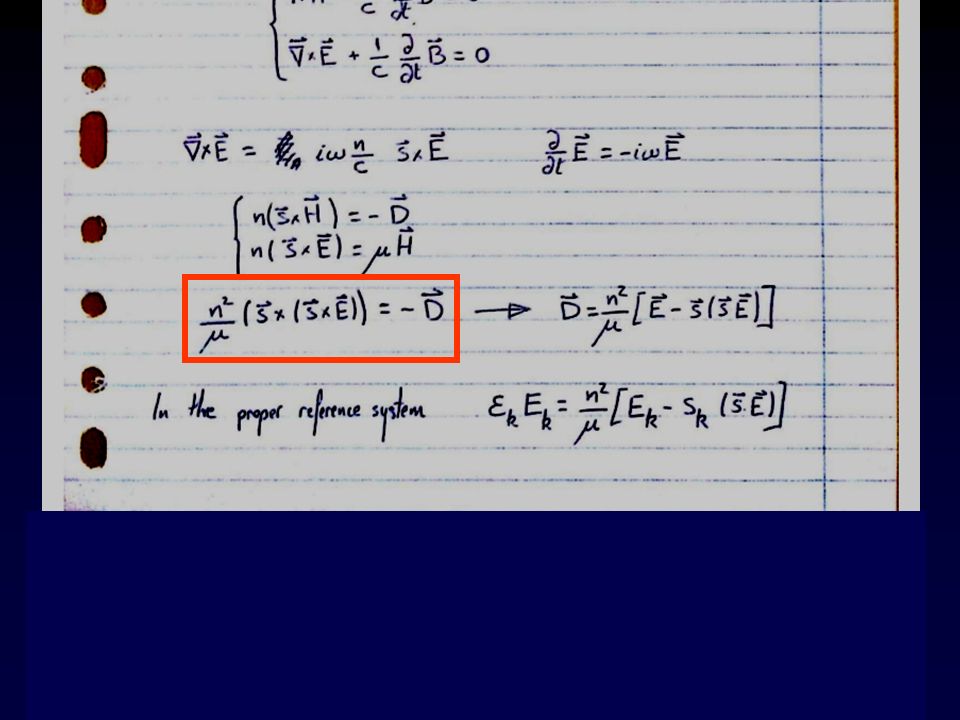 ∇⃗×E⃗ + 1/c ∂/∂t B⃗ = 0
∇⃗×E⃗ = iω n/c s⃗×E⃗    ∂/∂t E⃗ = -iωE⃗
n(s⃗×H⃗) = - D⃗
n(s⃗×E⃗) = μH⃗
n²/μ (s⃗×(s⃗×E⃗)) = - D⃗ → D⃗ = n²/μ [E⃗ - s⃗(s⃗E⃗)]
In the proper reference system    ε_k E_k = n²/μ [E_k - S_k (s⃗.E⃗)]